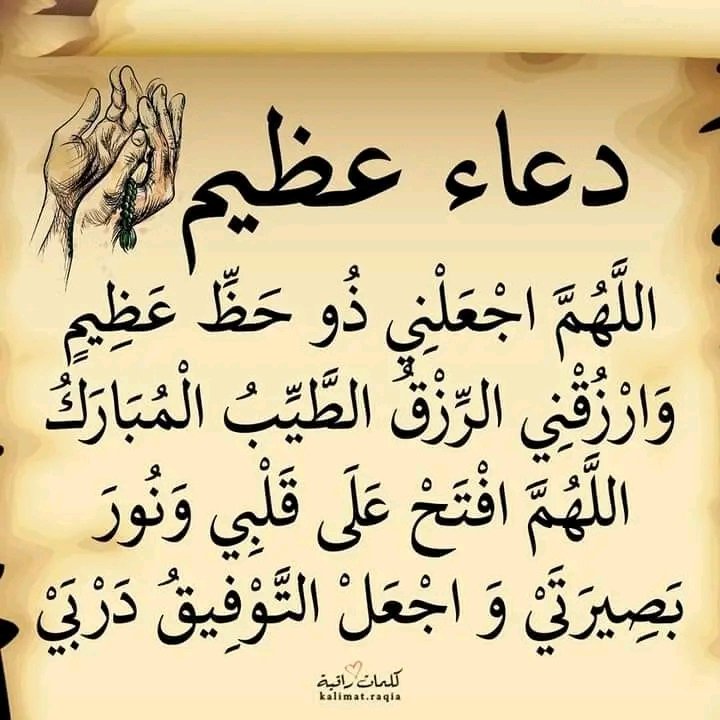 دعاء عظيم
اللَّهُمَّ اجْعَلْنِي ذُو حَظٍّ عَظِيمٍ
وَارْزُقْنِي الرِّزْقُ الطَّيِّبُ الْمُبَارَكُ
اللَّهُمَّ افْتَحْ عَلَى قَلْبِي وَنُورَ
بَصِيرَتَيْ وَ اجْعَلْ التَّوْفِيقُ دَرْبَيْ
كلمات راقية
kalimat.raqia